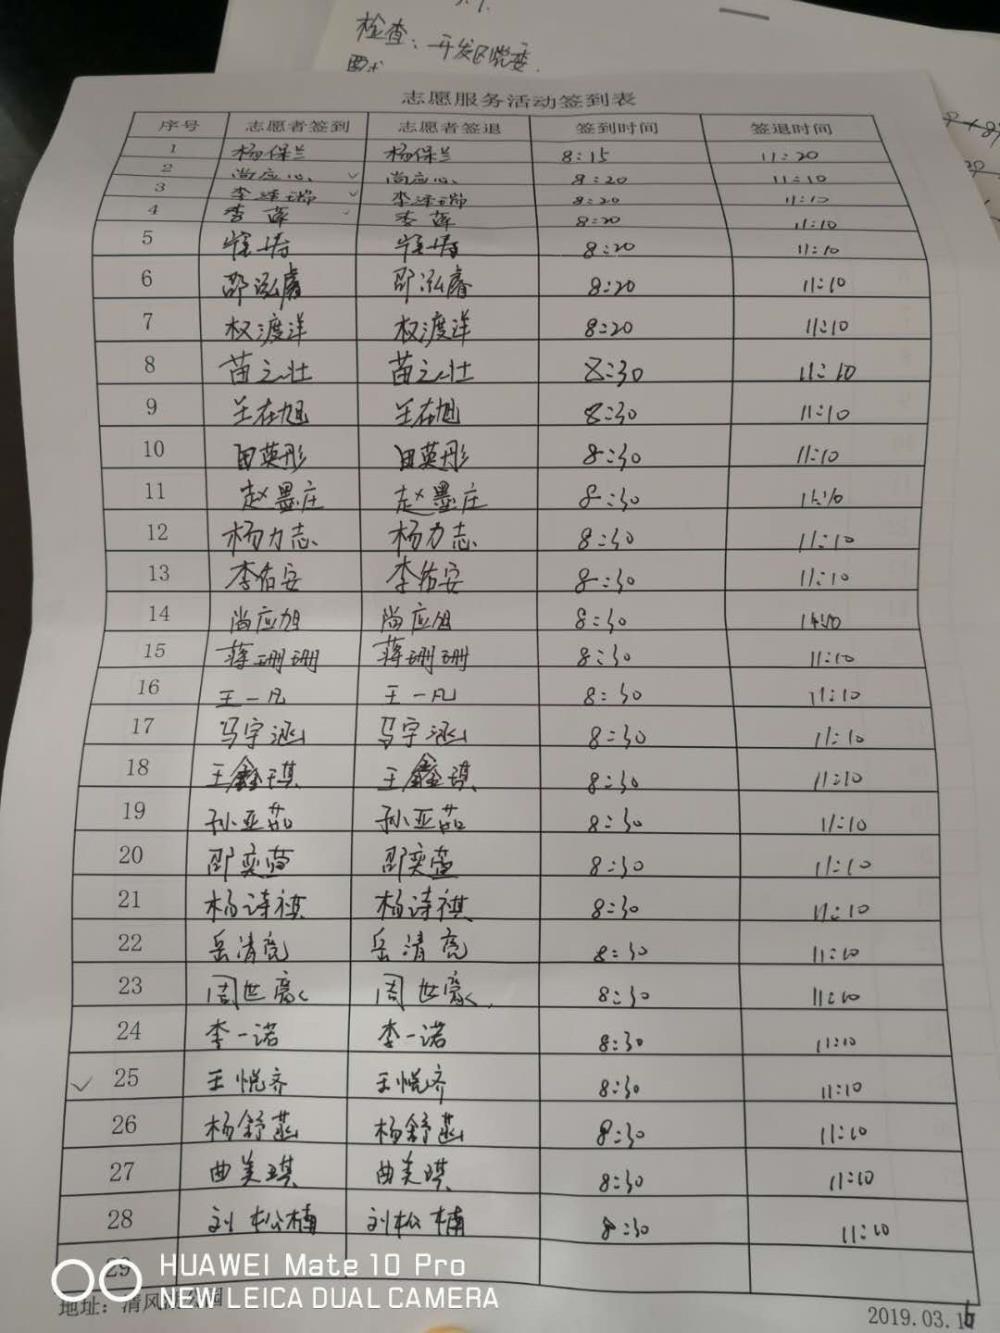 检查：开发区党委.
志愿服务活动签到表
序号 志愿者签到 志愿者签退 签到时间 签退时间
1 杨保兰 杨保兰 8:15 11:20
2 尚应心 ✓ 尚应心 8:20 11:10
3 李泽瑞 ✓ 李泽瑞 8:20 11:10
4 李莲 李莲 8:20 11:10
5 8:20 11:10
6 邵泓睿 邵泓睿 8:20 11:10
7 权渡洋 权渡洋 8:20 11:10
8 苗之壮 苗之壮 8:30 11:10
9 王在旭 王在旭 8:30 11:10
10 田英彤 田英彤 8:30 11:10
11 赵墨庄 赵墨庄 8:30 11:10
12 杨力志 杨力志 8:30 11:10
13 李佑安 李佑安 8:30 11:10
14 尚应旭 尚应旭 8:30 11:10
15 蒋珊珊 蒋珊珊 8:30 11:10
16 王一凡 王一凡 8:30 11:10
17 冯宇涵 冯宇涵 8:30 11:10
18 王鑫琪 王鑫琪 8:30 11:10
19 孙亚茹 孙亚茹 8:30 11:10
20 邵奕萱 邵奕萱 8:30 11:10
21 杨诗祺 杨诗祺 8:30 11:10
22 岳清亮 岳清亮 8:30 11:10
23 周世豪 周世豪 8:30 11:10
24 李一诺 李一诺 8:30 11:10
✓ 25 王悦齐 王悦齐 8:30 11:10
26 杨舒菡 杨舒菡 8:30 11:10
27 曲美琪 曲美琪 8:30 11:10
28 刘松楠 刘松楠 8:30 11:10
29
HUAWEI Mate 10 Pro
NEW LEICA DUAL CAMERA
地址：清风 公园
2019.03.16